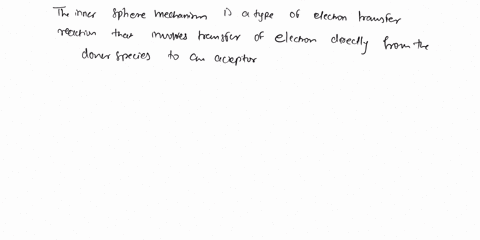 The inner sphere mechanism is a type of electron transfer
reaction that involves transfer of electron directly from the
donor species to an acceptor